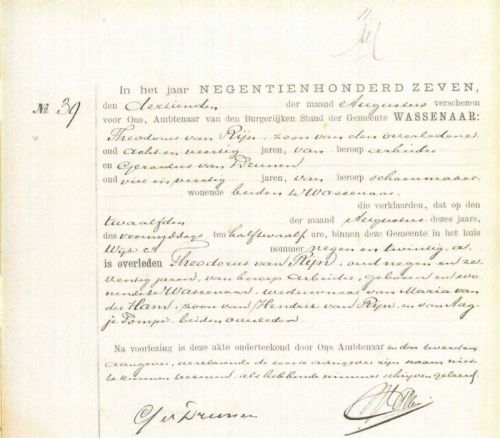 11.
No. 39
In het jaar NEGENTIENHONDERD ZEVEN,
den dertienden der maand Augustus verschenen
voor Ons, Ambtenaar van den Burgerlijken Stand der Gemeente WASSENAAR:
Theodorus van Rijn, zoon van den overledene,
oud acht en veertig jaren, van beroep arbeider
en Gerardus van Drunen
oud vier en veertig jaren, van beroep schoenmaker
wonende beiden te Wassenaar
die verklaarden, dat op den
twaalfden der maand Augustus dezes jaars,
des voormiddags ten half twaalf ure, binnen deze Gemeente in het huis
Wijk A nommer negen en twintig a.
is overleden Theodorus van Rijn, oud negen en ze-
ventig jaren, van beroep arbeider, geboren en wo-
nende te Wassenaar, weduwnaar van Maria van
der Ham, zoon van Hendrik van Rijn en van Aag-
je Pompe, beiden overleden
Na voorlezing is deze akte onderteekend door Ons Ambtenaar en den tweeden
aangever, verklarende de eerste aangever zijn naam niet
te kunnen teekenen, als hebbende nimmer schrijven geleerd.
G. v. Drunen